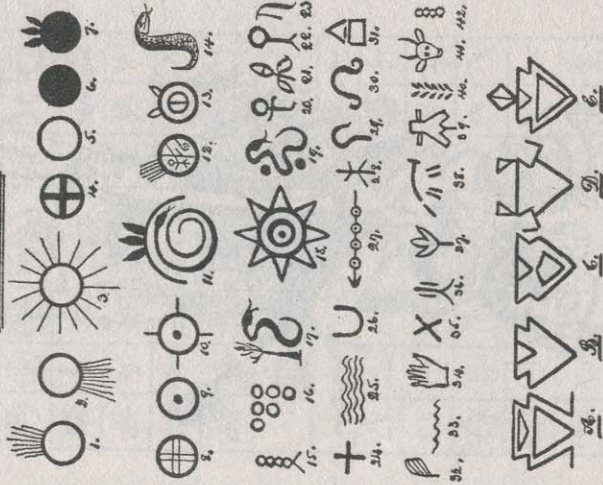 1. 2. 3. 4. 5. 6. 7.
8. 9. 10. 11. 12. 13. 14.
15. 16. 17. 18. 19. 20. 21. 22. 23
24. 25. 26. 27. 28. 29. 30. 31.
32. 33. 34. 35. 36. 37. 38. 39. 40. 41. 42.
A. B. C. D. E.